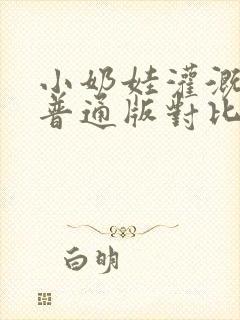 小奶娃灌溉
普通版對比
白明